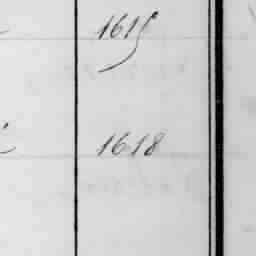 1615
1618